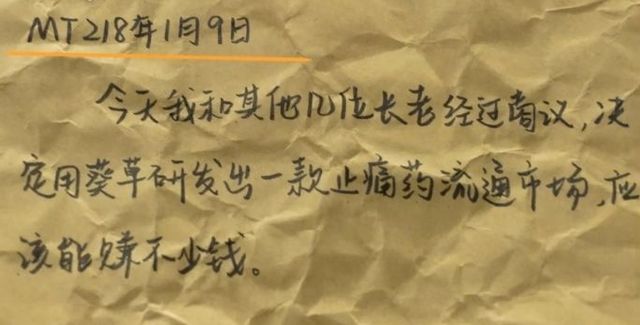 MT218年1月9日
今天我和其他几位长老经过商议,决
定用葵草研发出一款止痛药流通市场,应
该能赚不少钱。